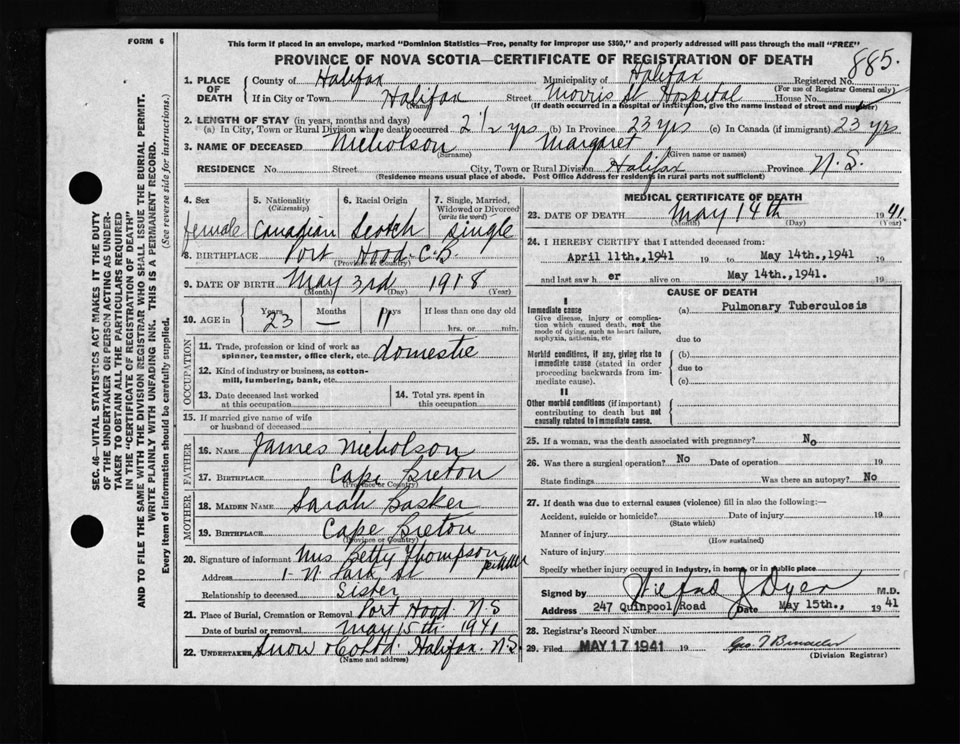 FORM 6
This form if placed in an envelope, marked "Dominion Statistics—Free, penalty for improper use $300," and properly addressed will pass through the mail "FREE"
PROVINCE OF NOVA SCOTIA—CERTIFICATE OF REGISTRATION OF DEATH
885.
1. PLACE OF DEATH County of Halifax Municipality of Halifax Registered No.
(For use of Registrar General only)
If in City or Town Halifax Street Morris St Hospital House No.
(Name) (If death occurred in a hospital or institution, give the name instead of street and number)
2. LENGTH OF STAY (in years, months and days)
(a) In City, Town or Rural Division where death occurred 2 1/2 yrs (b) In Province 23 yrs (c) In Canada (if immigrant) 23 yrs
3. NAME OF DECEASED Nicholson Margaret
(Surname) (Given name or names)
RESIDENCE No. Street City, Town or Rural Division Halifax Province N.S.
(Residence means usual place of abode. Post Office Address for residents in rural parts not sufficient)
4. Sex female
5. Nationality (Citizenship) Canadian
6. Racial Origin Scotch
7. Single, Married, Widowed or Divorced (write the word) Single
8. BIRTHPLACE Port Hood. C.B.
(Province or Country)
9. DATE OF BIRTH May 3rd 1918
(Month) (Day) (Year)
10. AGE in Years 23 Months — Days 11 If less than one day old
hrs. or min.
OCCUPATION
11. Trade, profession or kind of work as spinner, teamster, office clerk, etc. domestic
12. Kind of industry or business, as cotton-mill, lumbering, bank, etc.
13. Date deceased last worked at this occupation
14. Total yrs. spent in this occupation
15. If married give name of wife or husband of deceased
FATHER
16. NAME James Nicholson
17. BIRTHPLACE Cape Breton
(Province or Country)
MOTHER
18. MAIDEN NAME Sarah
19. BIRTHPLACE Cape Breton
(Province or Country)
20. Signature of informant Mrs Betty Thompson
Address 1- N. Park St
Relationship to deceased Sister
21. Place of Burial, Cremation or Removal Port Hood. N.S
Date of burial or removal May 15th. 1941
22. UNDERTAKER Snow & Co Ltd. Halifax. N.S.
(Name and address)
MEDICAL CERTIFICATE OF DEATH
23. DATE OF DEATH May 14th 1941.
(Month) (Day) (Year)
24. I HEREBY CERTIFY that I attended deceased from:
April 11th.,1941 19 to May 14th.,1941 19
and last saw h er alive on May 14th,1941. 19
CAUSE OF DEATH
I
Immediate cause
Give disease, injury or complication which caused death, not the mode of dying, such as heart failure, asphyxia, asthenia, etc
(a) Pulmonary Tuberculosis
due to
Morbid conditions, if any, giving rise to immediate cause (stated in order proceeding backwards from immediate cause).
(b)
due to
(c)
II
Other morbid conditions (if important) contributing to death but not causally related to immediate cause.
25. If a woman, was the death associated with pregnancy? No
26. Was there a surgical operation? No Date of operation 19
State findings Was there an autopsy? No
27. If death was due to external causes (violence) fill in also the following:—
Accident, suicide or homicide? Date of injury 19
(State which)
Manner of injury
(How sustained)
Nature of injury
Specify whether injury occurred in industry, in home, or in public place
Signed by Wilfrad J Dyer M.D.
Address 247 Quinpool Road Date May 15th., 1941
28. Registrar's Record Number
29. Filed MAY 17 1941 19
(Division Registrar)
SEC. 46—VITAL STATISTICS ACT MAKES IT THE DUTY
OF THE UNDERTAKER OR PERSON ACTING AS UNDER-
TAKER TO OBTAIN ALL THE PARTICULARS REQUIRED
IN THE "CERTIFICATE OF REGISTRATION OF DEATH"
AND TO FILE THE SAME WITH THE DIVISION REGISTRAR WHO SHALL ISSUE THE BURIAL PERMIT.
WRITE PLAINLY WITH UNFADING INK. THIS IS A PERMANENT RECORD.
Every item of information should be carefully supplied. (See reverse side for instructions.)